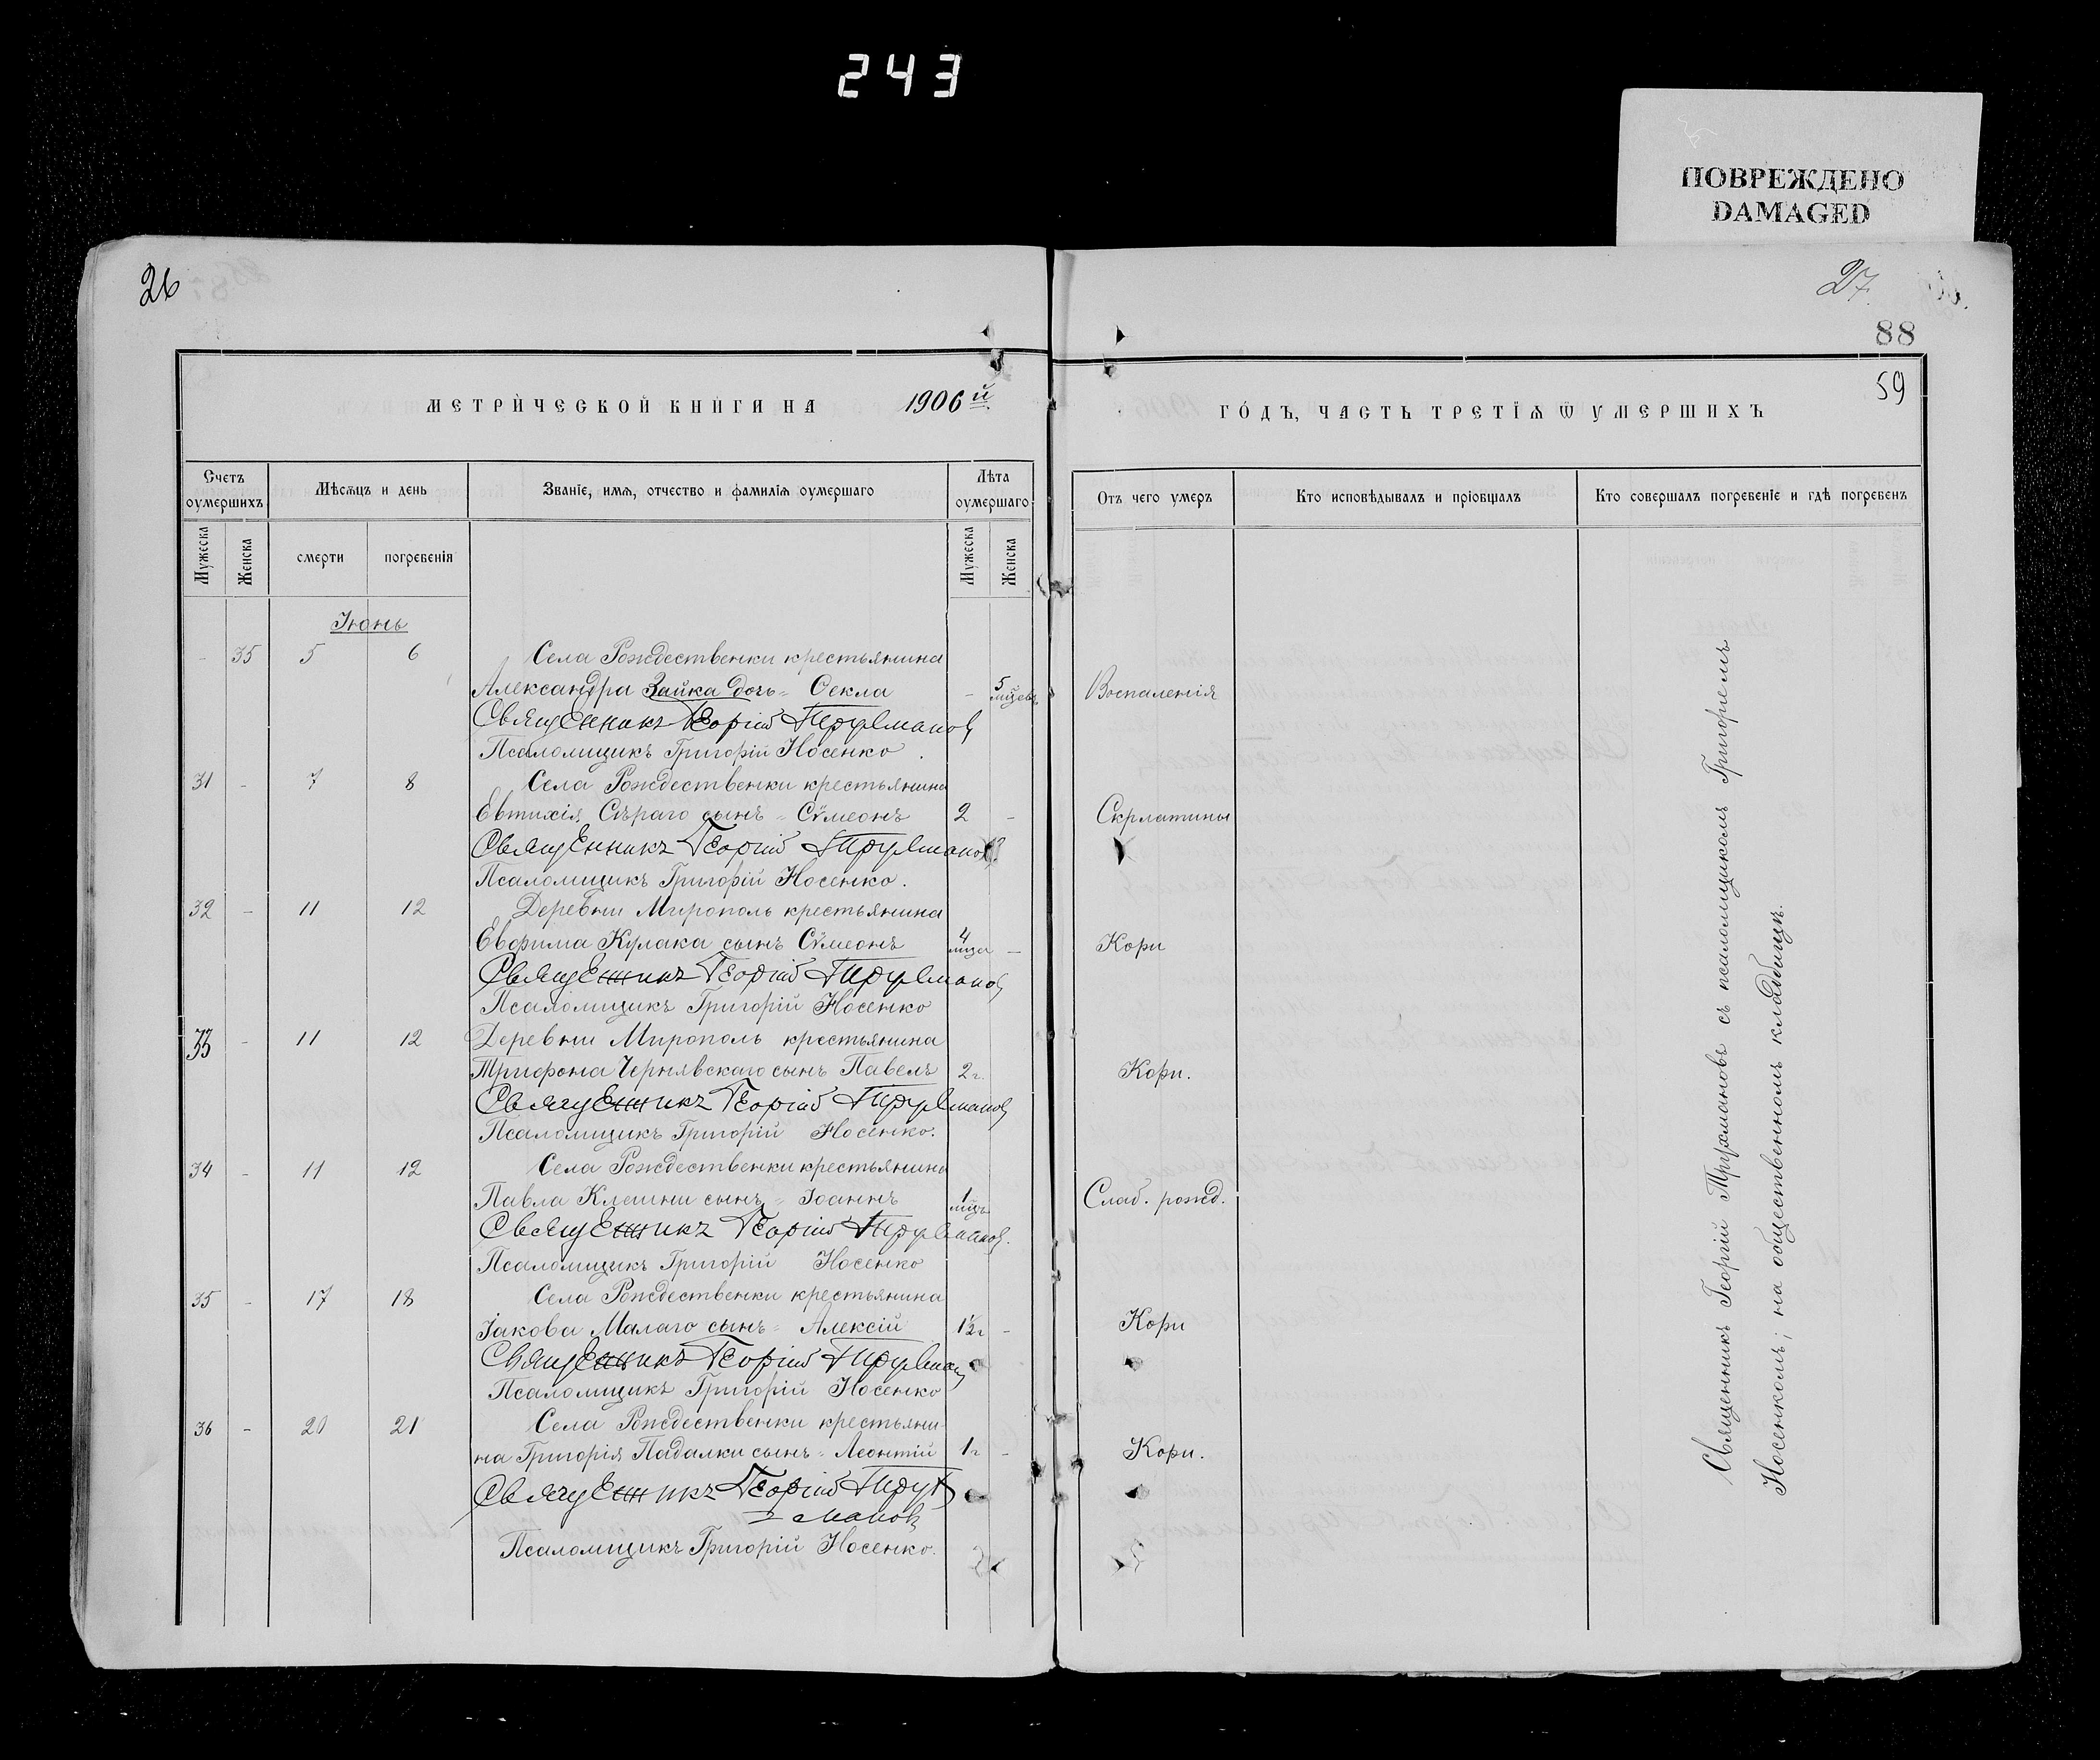 243
ПОВРЕЖДЕНО
DAMAGED
26
МЕТРИЧЕСКОЙ КНИГИ НА 1906й
Счетъ оумершихъ
Мѣсяцъ и день
Званіе, имя, отчество и фамилія оумершаго
Лѣта оумершаго
Мужеска
Женска
смерти
погребенія
Мужеска
Женска
Іюнь
- 35 5 6 Села Рождественки крестьянина
Александра Зайка дочь = Ѳекла - 5 мѣсяцевъ
Священникъ Георгій Трухмановъ
Псаломщикъ Григорій Носенко
31 - 7 8 Села Рождественки крестьянина
Евтихія Сѣраго сынъ = Сѵмеонъ 2 -
Священникъ Георгій Трухмановъ
Псаломщикъ Григорій Носенко.
32 - 11 12 Деревни Мирополь крестьянина
Евѳима Кулака сынъ Сѵмеонъ 4 мѣца -
Священникъ Георгій Трухмановъ
Псаломщикъ Григорій Носенко
33 - 11 12 Деревни Мирополь крестьянина
Трифона Чернявскаго сынъ Павелъ 2 г.
Священникъ Георгій Трухмановъ
Псаломщикъ Григорій Носенко.
34 - 11 12 Села Рождественки крестьянина
Павла Клешни сынъ = Іоаннъ 1 мѣцъ
Священникъ Георгій Трухмановъ.
Псаломщикъ Григорій Носенко
35 - 17 18 Села Рождественки крестьянина
Іакова Малаго сынъ = Алексій 1½ г -
Священникъ Георгій Трухмановъ
Псаломщикъ Григорій Носенко
36 - 20 21 Села Рождественки крестьяни-
на Григорія Падалки сынъ = Леонтій 1 г -
Священникъ Георгій Трух
= мановъ
Псаломщикъ Григорій Носенко.
27.
88
59
ГОДЪ, ЧАСТЬ ТРЕТІЯ Ѿ УМЕРШИХЪ
Отъ чего умеръ
Кто исповѣдывалъ и пріобщалъ
Кто совершалъ погребеніе и гдѣ погребенъ
Воспаленія
Скрлатины
Кори
Кори.
Слаб. рожд.
Кори
Кори.
Священникъ Георгій Трухмановъ съ псаломщикомъ Григоріемъ
Носенкомъ; на общественномъ кладбищѣ.